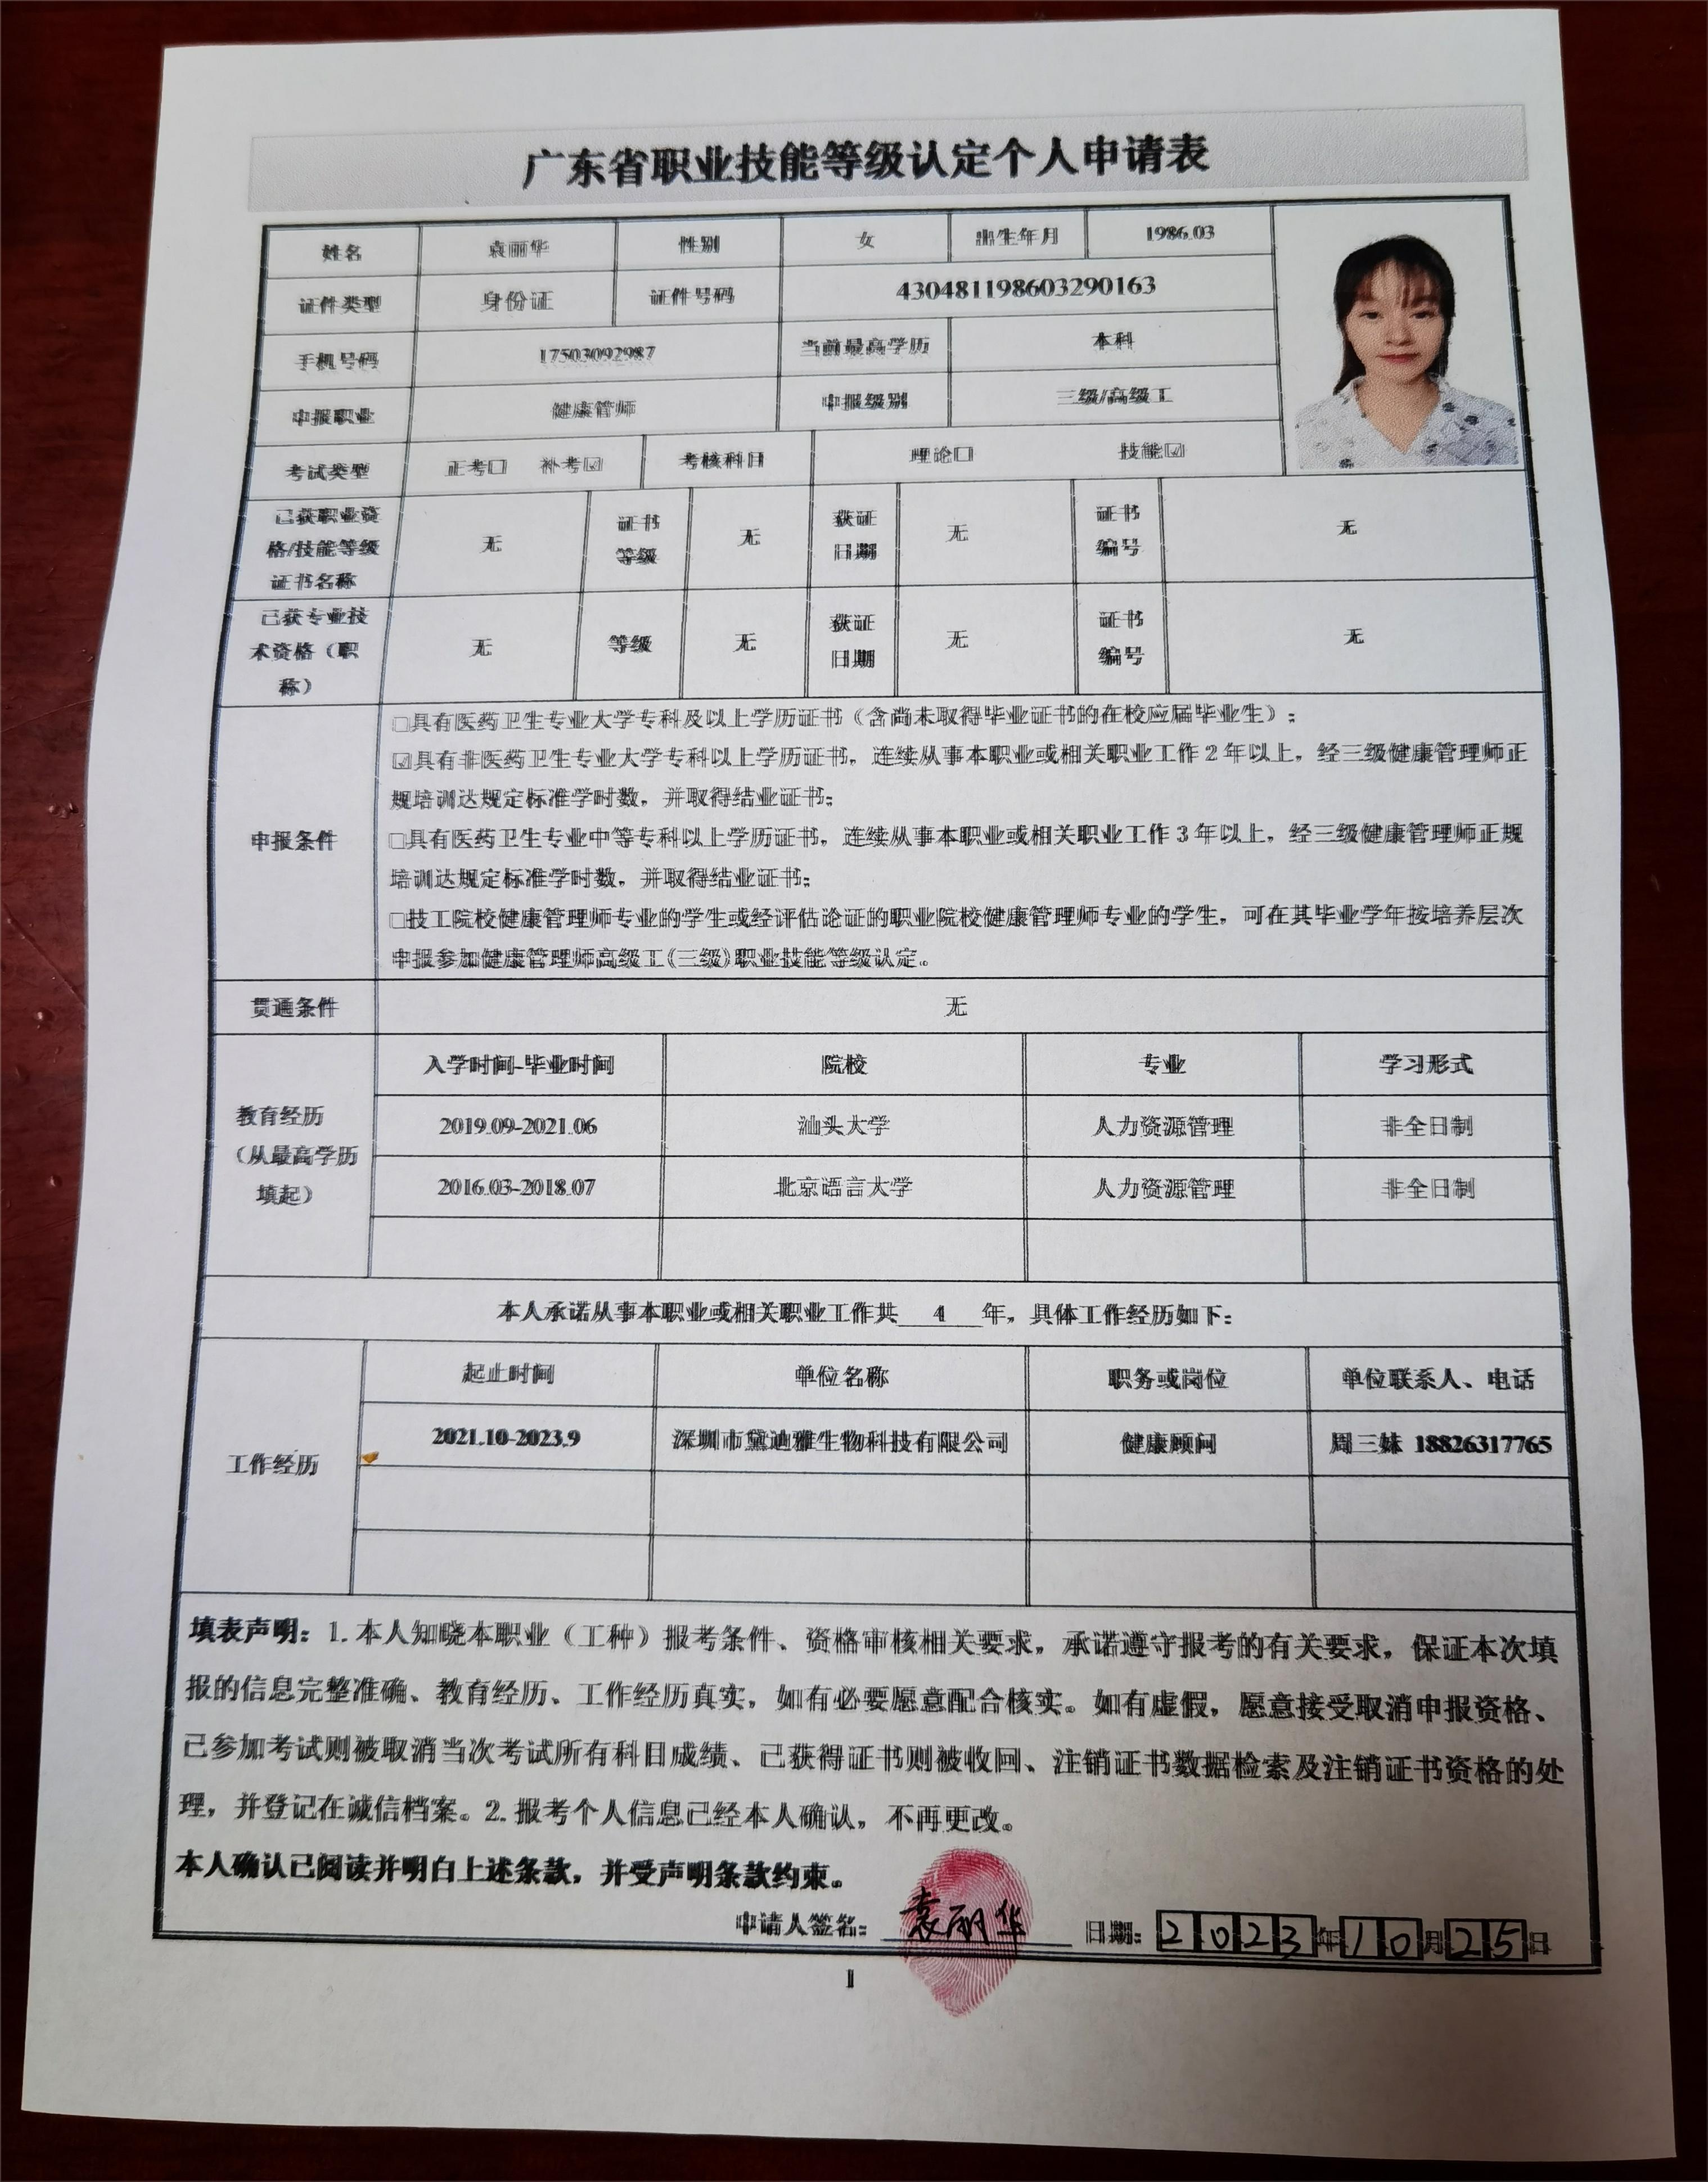 广东省职业技能等级认定个人申请表
姓名 袁丽华 性别 女 出生年月 1986.03
证件类型 身份证 证件号码 430481198603290163
手机号码 17503092987 当前最高学历 本科
申报职业 健康管师 申报级别 三级/高级工
考试类型 正考□ 补考☑ 考核科目 理论□ 技能☑
已获职业资
格/技能等级
证书名称 无 证书
等级 无 获证
日期 无 证书
编号 无
已获专业技
术资格（职
称） 无 等级 无 获证
日期 无 证书
编号 无
申报条件
□具有医药卫生专业大学专科及以上学历证书（含尚未取得毕业证书的在校应届毕业生）；
☑具有非医药卫生专业大学专科以上学历证书，连续从事本职业或相关职业工作 2 年以上，经三级健康管理师正
规培训达规定标准学时数，并取得结业证书；
□具有医药卫生专业中等专科以上学历证书，连续从事本职业或相关职业工作 3 年以上，经三级健康管理师正规
培训达规定标准学时数，并取得结业证书；
□技工院校健康管理师专业的学生或经评估论证的职业院校健康管理师专业的学生，可在其毕业学年按培养层次
申报参加健康管理师高级工(三级)职业技能等级认定。
贯通条件 无
教育经历
（从最高学历
填起）
入学时间-毕业时间 院校 专业 学习形式
2019.09-2021.06 汕头大学 人力资源管理 非全日制
2016.03-2018.07 北京语言大学 人力资源管理 非全日制
本人承诺从事本职业或相关职业工作共 4 年，具体工作经历如下：
工作经历
起止时间 单位名称 职务或岗位 单位联系人、电话
2021.10-2023.9 深圳市黛迪雅生物科技有限公司 健康顾问 周三妹 18826317765
填表声明：1. 本人知晓本职业（工种）报考条件、资格审核相关要求，承诺遵守报考的有关要求，保证本次填
报的信息完整准确、教育经历、工作经历真实，如有必要愿意配合核实。如有虚假，愿意接受取消申报资格、
已参加考试则被取消当次考试所有科目成绩、已获得证书则被收回、注销证书数据检索及注销证书资格的处
理，并登记在诚信档案。2. 报考个人信息已经本人确认，不再更改。
本人确认已阅读并明白上述条款，并受声明条款约束。
申请人签名： 袁丽华 日期： 2023年10月25日
1